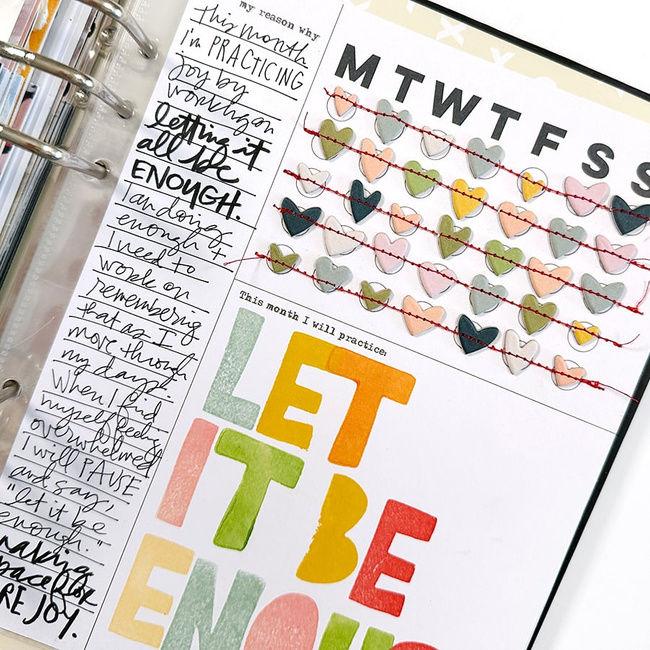 my reason why
this month
I'm PRACTICING
joy by
working on
letting it
all be
ENOUGH.
I am doing
enough +
I need to
work on
remembering
that as I
move through
my days.
When I find
myself feeling
overwhelmed
I will PAUSE
and say,
"let it be
enough."
making
space for
RE JOY.
M T W T F S S
This month I will practice:
LET
IT BE
ENOUG